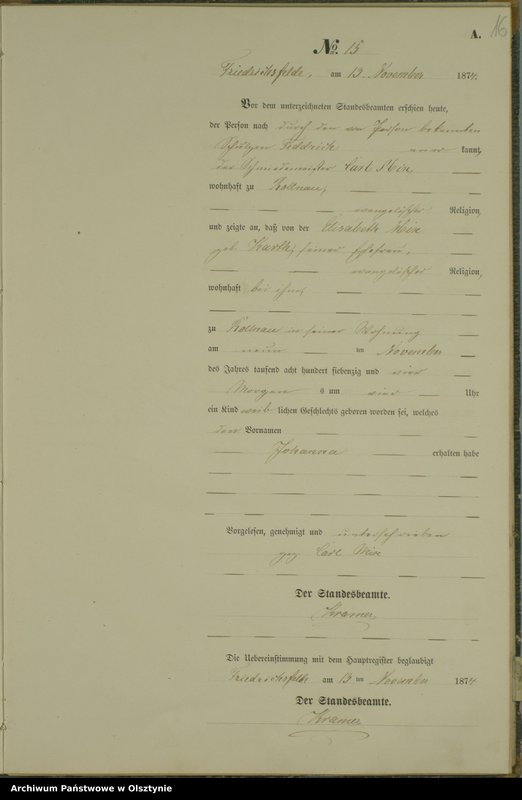 A. 16
No. 15
Friedrichsfelde, am 13 November 1874.
Vor dem unterzeichneten Standesbeamten erschien heute,
der Person nach durch den von Person bekannten
Schulzen kannt,
der Schmiedemeister Carl Meix,
wohnhaft zu Kollnau,
evangelischer Religion,
und zeigte an, daß von der Elisabeth Meix
geb. Karth, seiner Ehefrau,
evangelischer Religion,
wohnhaft bei ihm,
zu Kollnau in seiner Wohnung
am neun ten November
des Jahres tausend acht hundert siebenzig und vier
Morgen s um vier Uhr
ein Kind weib lichen Geschlechts geboren worden sei, welches
den Vornamen
Johanna erhalten habe
Vorgelesen, genehmigt und unterschrieben
gez. Carl Meix
Der Standesbeamte.
Kramer
Die Uebereinstimmung mit dem Hauptregister beglaubigt
Friedrichsfelde am 13 ten November 1874
Der Standesbeamte.
Kramer
Archiwum Państwowe w Olsztynie